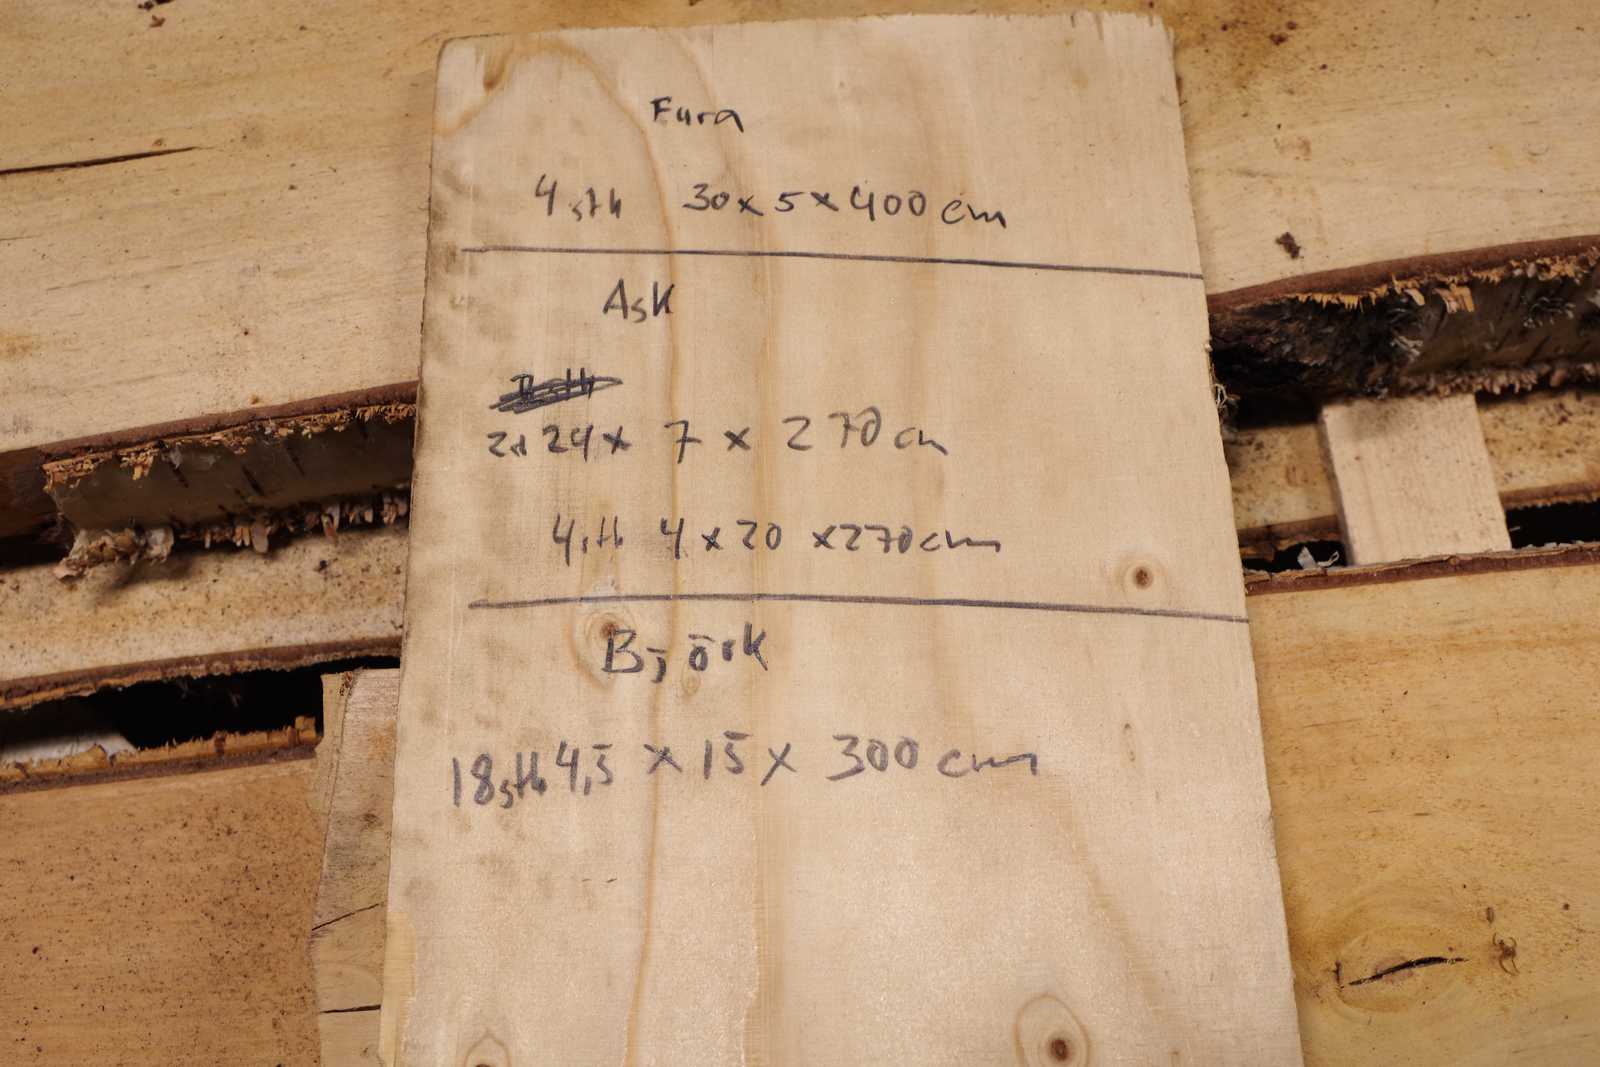 Fura
4 stk 30 x 5 x 400 cm
Ask
24 x 7 x 270 cm
4 stk 4 x 20 x 270 cm
Björk
18 stk 4,5 x 15 x 300 cm